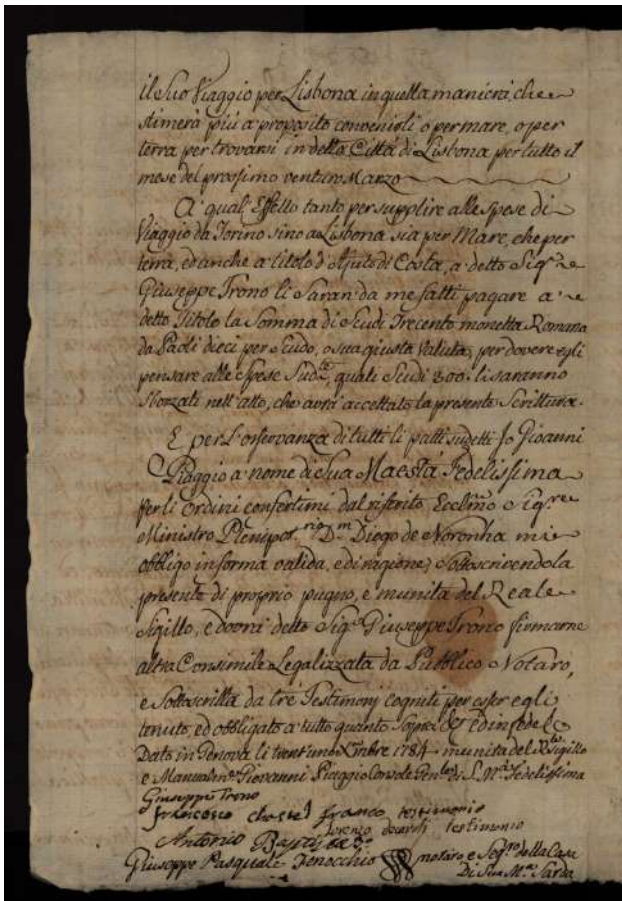 il Suo Viaggio per Lisbona in quella maniera, che
stimerà piú a proposito convenirli o per mare, o per
terra per trovarsi in della Città di Lisbona per tutto il
mese del prossimo venturo Marzo
A' qual' Effetto tanto per supplire alle Spese di
Viaggio da Torino sino a Lisbona sia per Mare, che per
terra, ed anche a titolo d'Ajuto di Costa, a detto Sigre
Giuseppe Trono li Saran da me fatti pagare a
detto Titolo la Somma di Scudi Trecento monetta Romana
da Paoli dieci per Scudo, o sua giusta Valuta, per dovere egli
pensare alle Spese Sudte, quali Scudi 300. li saranno
Sborzati nell'atto, che avrà accettato la presente Scrittura.
E per L'osservanza di tutti li patti sudetti Jo Gioanni
Piaggio a nome di Sua Maestà Fedelissima
per li ordini confertimi dal riferito Ecclmo Sigre
Ministro Plenipotrio Dm Diogo de Noronha mi
obbligo in forma valida, e di ragione, Sottoscrivendo la
presente di proprio pugno, e munita del Reale
Sigillo, e dovrà detto Sigr Giuseppe Trono firmarne
altra Consimile Legalizzata da Pubblico Notaro,
e Sottoscritta da tré Testimonj cogniti per esser egli
tenuto, ed obbligato a tutto quanto Sopra & ed in fede &
Dato in Genova li trent'uno Xmbre 1784. munita del Rl Sigillo
e Manualmte Giovanni Piaggio Console Genle di S. Mà Fedelissima
Giuseppe Trono
Francesco franco testimonio
Lorenzo testimonio
Antonio
Giuseppe Pasquale Fenocchio notaro e Segro della Casa
Di Sua Mà Sarda